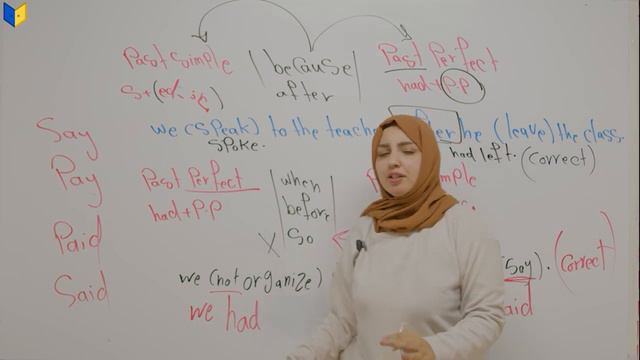 Past simple | because | Past Perfect
S+(ed-ie) after had+P.P
we (speak) to the teache her he (leave) the class.
spoke. had left. (correct)
Say
Pay
Paid
Said
Past Perfect | when | mple
had+P.P before
X so
we (not organize) (say). (Correct)
we had aid